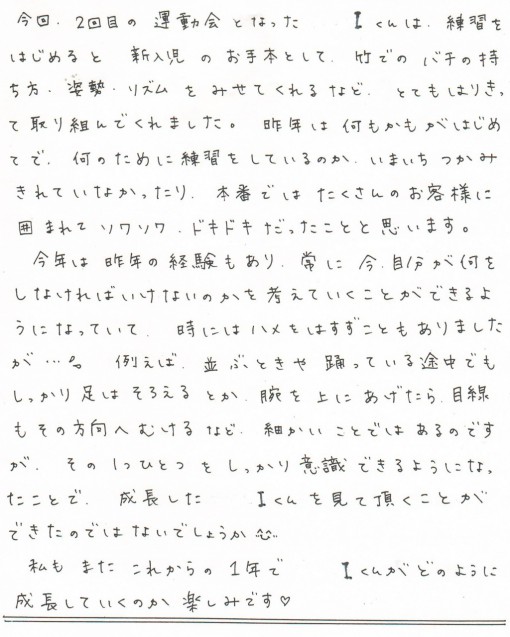 今回、2回目の運動会となった Iくんは、練習を
はじめると 新入児のお手本として、竹でのバチの持
ち方・姿勢・リズムをみせてくれるなど、とてもはりきっ
て取り組んでくれました。昨年は何もかもがはじめ
てで、何のために練習をしているのか、いまいちつかみ
きれていなかったり、本番ではたくさんのお客様に
囲まれてソワソワ、ドキドキだったことと思います。
今年は昨年の経験もあり、常に今、自分が何を
しなければいけないのかを考えていくことができるよ
うになっていて、時にはハメをはずすこともありました
が…。例えば、並ぶときや踊っている途中でも
しっかり足はそろえるとか、腕を上にあげたら、目線
もその方向へむけるなど、細かいことではあるのです
が、その1つひとつをしっかり意識できるようになっ
たことで、成長した Iくんを見て頂くことが
できたのではないでしょうか
私もまたこれからの1年で Iくんがどのように
成長していくのか楽しみです♡